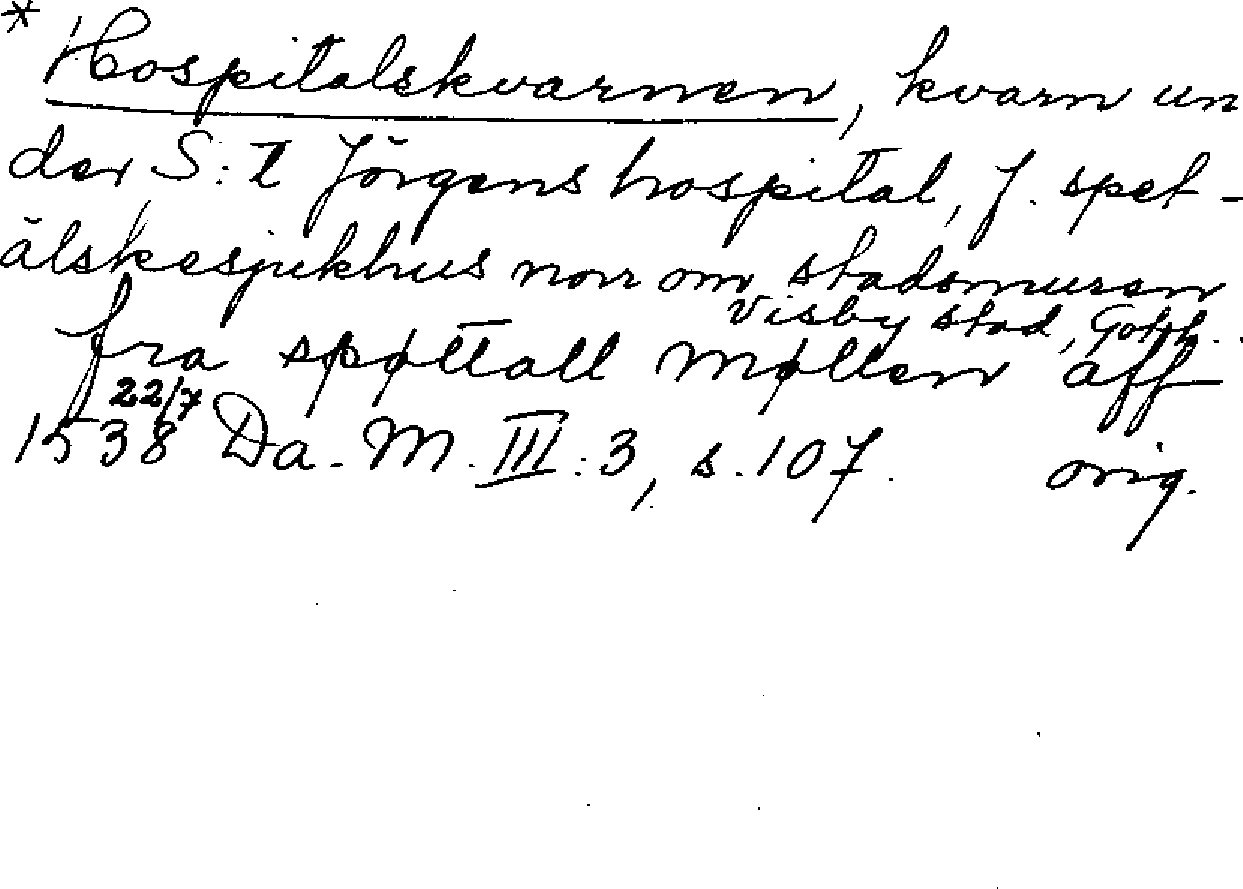 * Hospitalskvarnen, kvarn un
der S:t Jörgens hospital, f. spet-
älskesjukhus norr om stadsmuren
Visby stad, Gotl.
fra spøttall Møllenn aff
1538 22/7 Da. M. III:3, s. 107. orig.